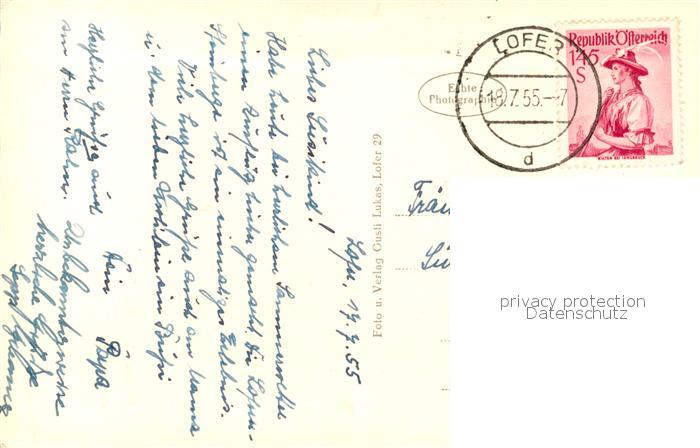 Lofer, 17.7.55
Liebes Susikind!
Habe heute bei herrlichem Sommerwetter
einen Ausflug hierher gemacht, die Lofer-
ist ein einmaliges Erlebnis.
Viele herzliche Grüße auch an Mama
u.
Dein Papa
Herzliche Grüße auch
an Herrn
Unbekannterweise
herzliche Grüße
Foto u. Verlag Gusti Lukas, Lofer 29
Echte
Photographie
LOFER
18.7.55.-7
d
Republik Österreich
1'45
S
WILTEN BEI INNSBRUCK
Fräu
privacy protection
Datenschutz